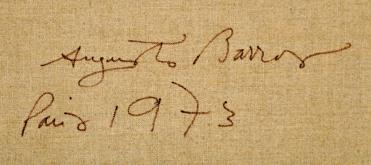 Augusto Barros
Paris 1973